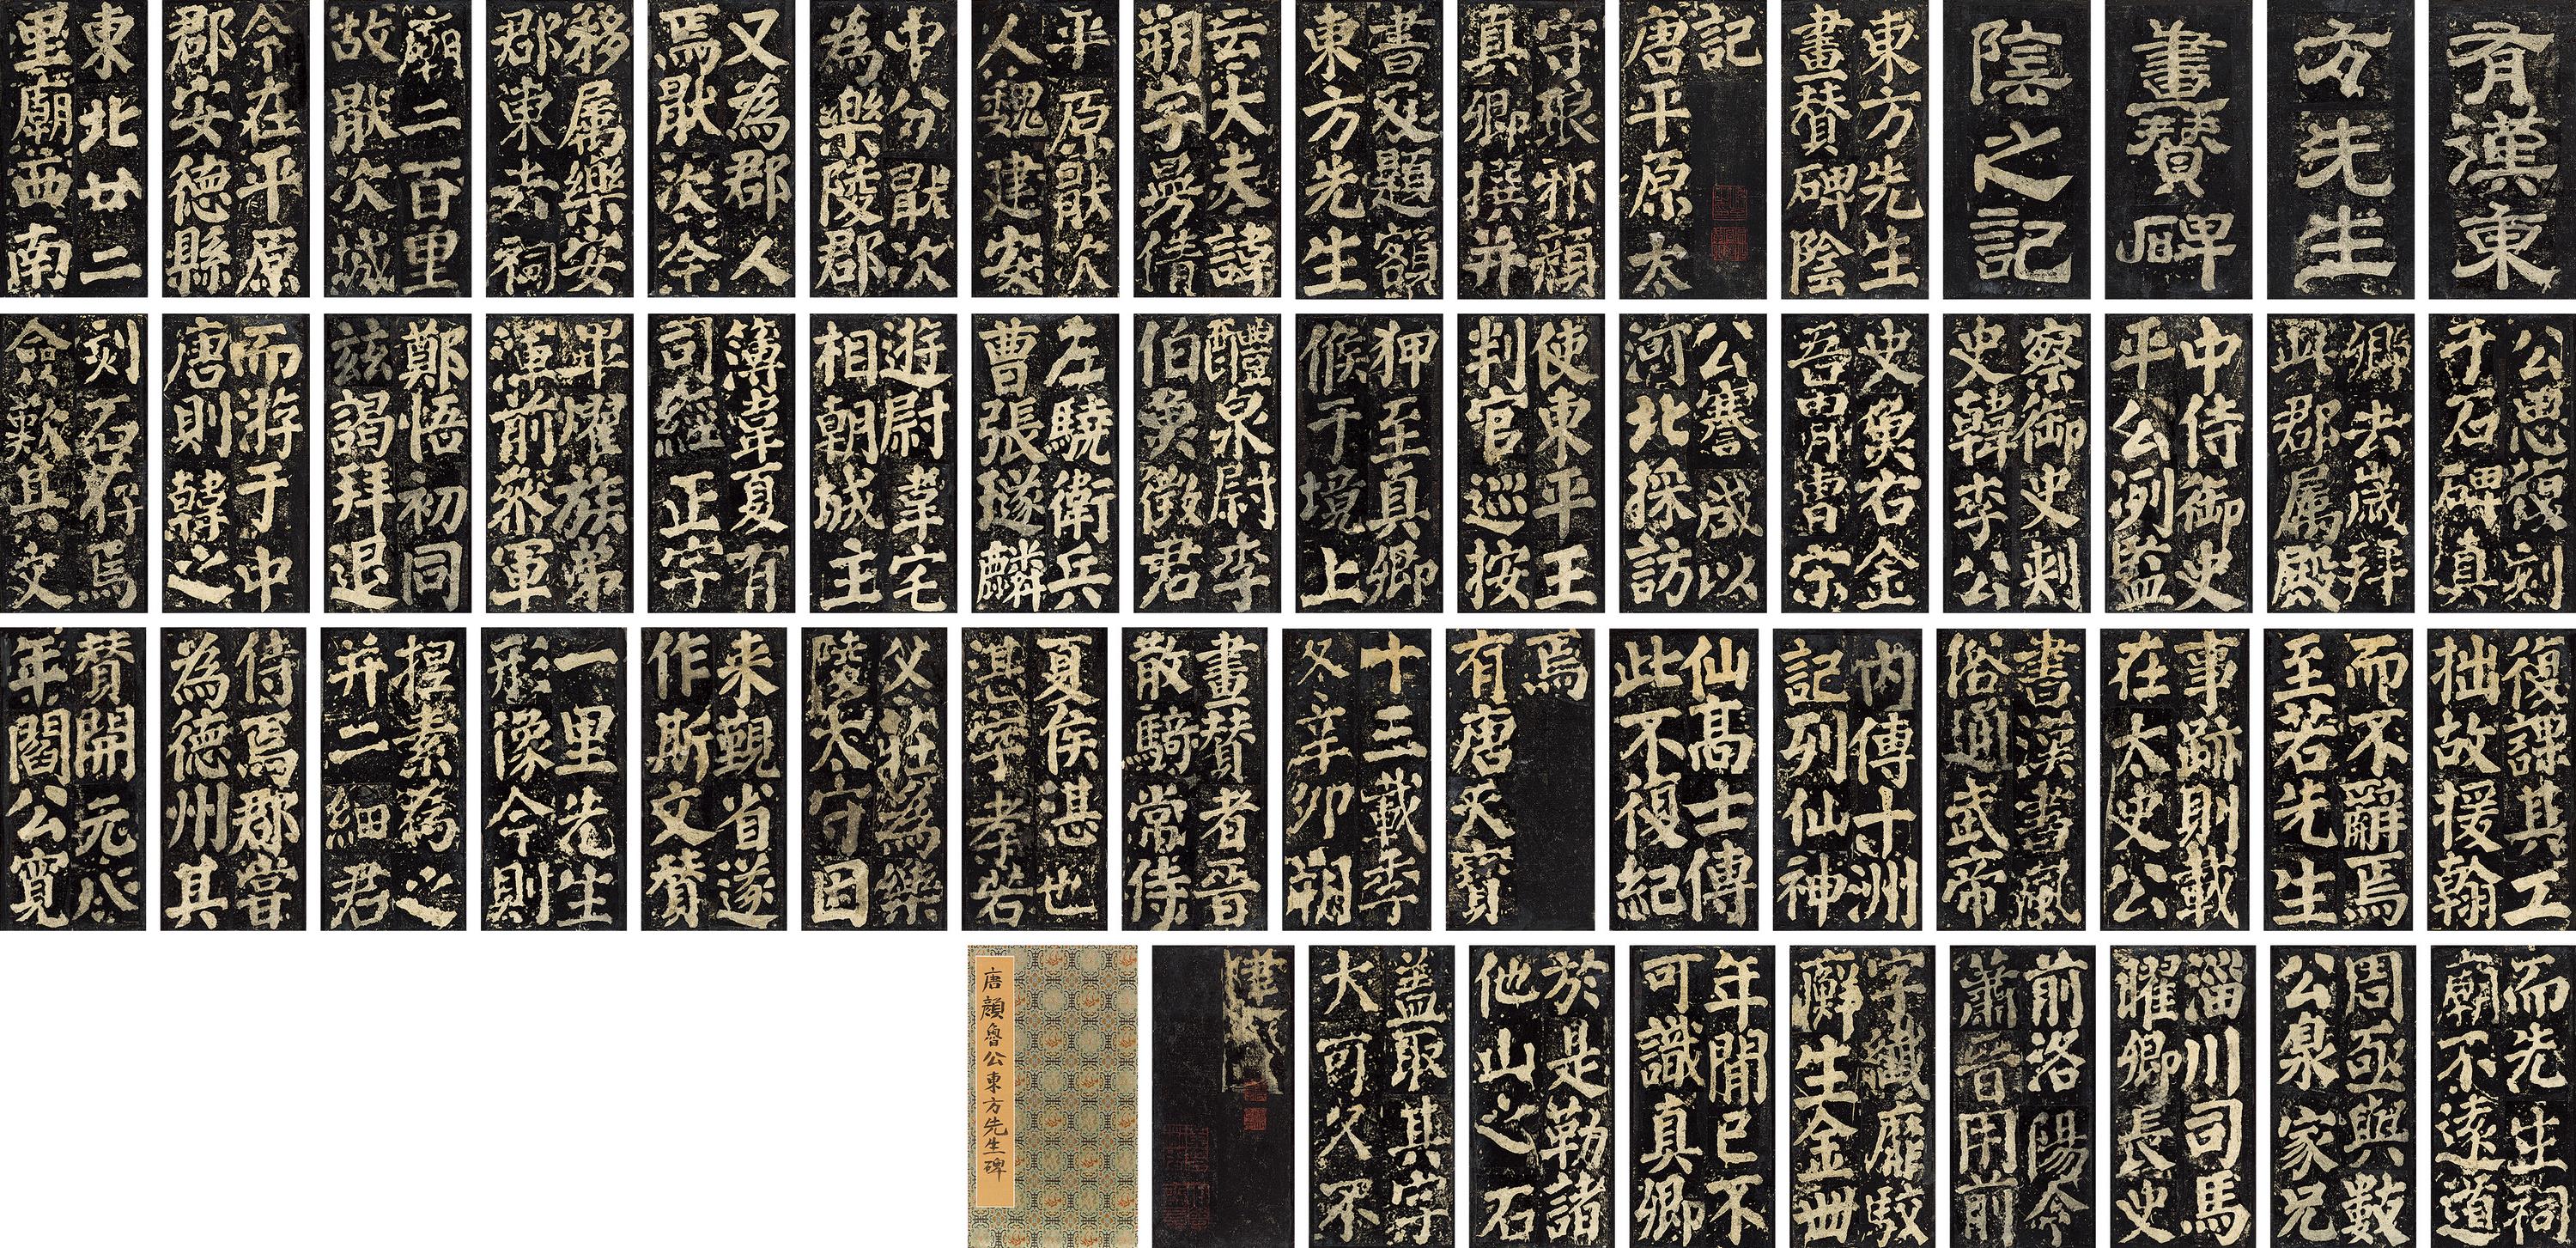 有漢東
方先生
畫贊碑
陰之記
東方先生
畫贊碑陰
記
唐平原太
守琅邪顏
真卿撰并
書及題額
東方先生
云大夫諱
朔字曼倩
平原猒次
人魏建安
中分猒次
為樂陵郡
又為郡人
焉猒次今
移属樂安
郡東去祠
廟二百里
故猒次城
今在平原
郡安德縣
東北廿二
里廟西南
公思復刻
于石碑真
卿去歲拜
此郡属殿
中侍御史
平公冽監
察御史
史韓李公
史奠右金
吾冑曹宋
公謇咸以
河北採訪
使東平王
判官巡按
狎至真卿
候于境上
醴泉尉李
伯魚徵君
左驍衛兵
曹張璲麟
遊尉韋宅
相朝城主
簿韋夏有
司經正字
畢燿族弟
渾前參軍
鄭悟初同
茲謁拜退
而游于中
唐則韓之
刻石存焉
僉歎其文
復課其工
拙故援翰
而不辭焉
至若先生
事跡則載
在太史公
書漢書風
俗通武帝
内傳十洲
記列仙神
仙高士傳
此不復紀
焉
有唐天寶
十三載季
冬辛卯朔
畫贊者晉
散騎常侍
夏侯湛也
湛字孝若
父莊為樂
陵太守因
来覲省遂
作斯文贊
一里先生
形像今則
捏素為之
并二細君
侍焉郡嘗
為德州其
贊開元八
年閻公寬
而先生祠
廟不遠道
周亟與數
公泉家兄
淄川司馬
曜卿長史
前洛陽令
蕭晉用前
字纎靡駮
蘚生金四
年間已不
可識真卿
於是勒諸
他山之石
蓋取其字
大可久不
唐顏魯公東方先生碑